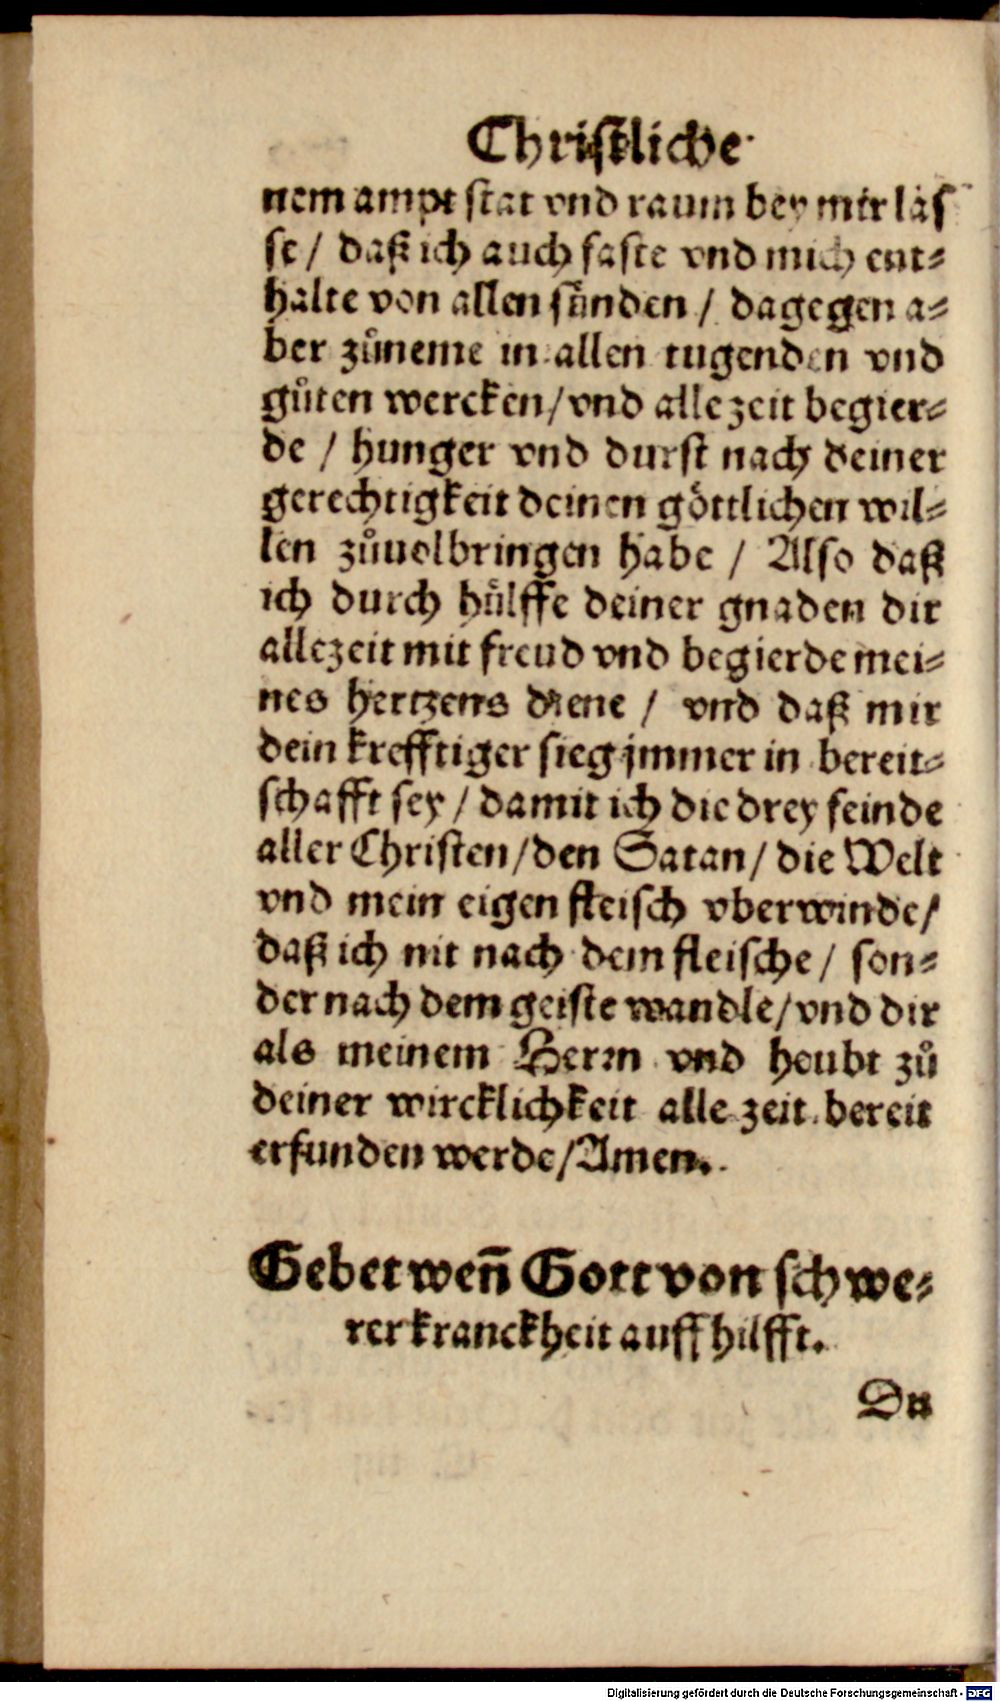 Christliche
nem ampt stat vnd raum bey mir las
se / daß ich auch faste vnd mich ent-
halte von allen sünden / dagegen a-
ber zůneme in allen tugenden vnd
gůten wercken/vnd alle zeit begier-
de / hunger vnd durst nach deiner
gerechtigkeit deinen göttlichen wil-
len zůuolbringen habe / Also daß
ich durch hülffe deiner gnaden dir
allezeit mit freud vnd begierde mei-
nes hertzens diene / vnd daß mir
dein krefftiger sieg jmmer in bereit-
schafft sey / damit ich die drey feinde
aller Christen/den Satan/ die Welt
vnd mein eigen fleisch vberwinde/
daß ich nit nach dem fleische / son-
der nach dem geiste wandle/vnd dir
als meinem Herrn vnd heubt zů
deiner wircklichkeit alle zeit bereit
erfunden werde/Amen.
Gebet wen̄ Gott von schwe-
rer kranckheit auff hilfft.
Du
Digitalisierung gefördert durch die Deutsche Forschungsgemeinschaft - DFG